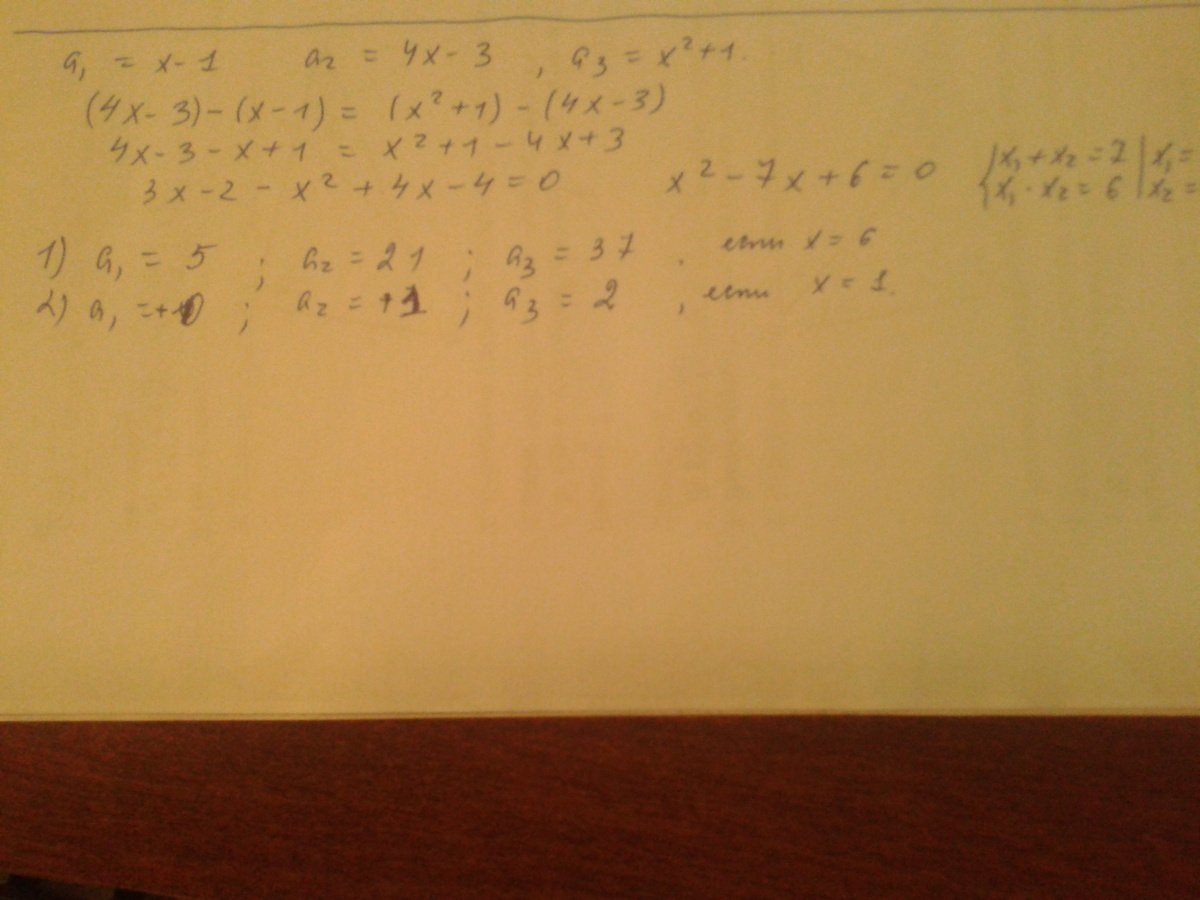 a₁ = x - 1 a₂ = 4x - 3 , a₃ = x² + 1.
(4x - 3) - (x - 1) = (x² + 1) - (4x - 3)
4x - 3 - x + 1 = x² + 1 - 4x + 3
3x - 2 - x² + 4x - 4 = 0 x² - 7x + 6 = 0 { x₁ + x₂ = 7 | x₁ =
x₁ · x₂ = 6 | x₂ =
1) a₁ = 5 ; a₂ = 21 ; a₃ = 37 . если x = 6
2) a₁ = +0 ; a₂ = +1 ; a₃ = 2 , если x = 1.